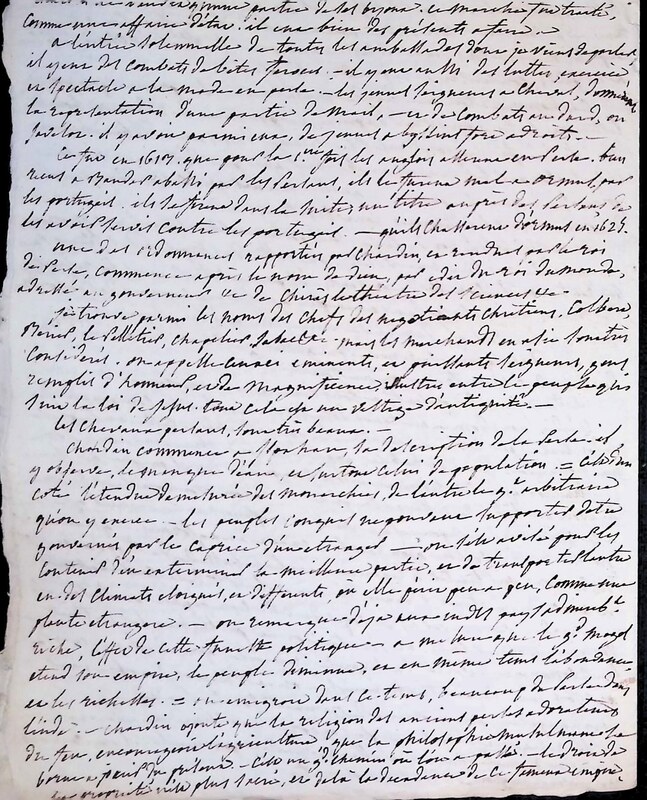 partie de ses bijoux. ce marché fut traité,
comme une affaire d'état. il eut bien des présents a faire.
a l'entrée solemnelle de toutes les ambassades dont je viens de parler,
il y eut des combats de bêtes feroces. — il y eut aussi des luttes, exercice
en spectacle a la mode en perse. — les jeunes seigneurs a cheval, donnèrent
la representation d'une partie de mail, — et de combats au dard, ou
javelot. il y avoit parmi eux, de jeunes abyssins fort adroits. —
ce fut en 1613. que pour la 1ere fois les anglois allerent en Perse. bien
recus a Bander abassi par les Persans, ils le furent mal a ormus, par
les portugais. ils se firent dans la suite un titre auprès des Persans de
les avoir servis contre les portugais. — qu'ils chasserent d'ormus en 1622.
une des ordonnances rapportées par chardin, et rendues par le roi
de Perse, commence après le nom de dieu, par edit du roi du monde,
adressé au gouverneur de Chiras le theatre des sciences
je trouve parmi les noms des chefs des negotiants chrétiens, Colbert,
le Pelletier, chapelier mais les marchands en asie sont très
considérés. on appelle ceux-ci eminents, et puissants seigneurs, gens
remplis d'honneur, et de magnificence, illustres entre le peuple qui
suit la loi de jesus. tout cela est un vestige d'antiquité. —
les chevaux persans, sont très beaux. —
Chardin commence a Ispahan, la description de la Perse. il
y observe, le manque d'eau, et surtout celui de population. = cela vient d'un
coté l'étendue demesurée des monarchies, de l'autre le gt arbitraire
qu'on y exerce. — les peuples conquis ne pouvant supporter d'etre
gouvernés par le caprice d'un etranger — on s'est avisé pour les
contenir d'en exterminer la meilleure partie, et de transporter l'autre
en des climats eloignés, et differents, ou elle périt peu a peu, comme une
plante etrangere. — on remarque déja aux indes pays admirablt
riche, l'effet de cette funeste politique — a mesure que le gd mogol
etend son empire, le peuple diminue, et en même tems l'abondance
et les richesses. = on emigroit dans ce tems, beaucoup de Perse dans
l'inde. — chardin ajoute que la religion des anciens perses adorateurs
du feu, encourageoit l'agriculture, que la philosophie musulmane la
borne a jouir du présent. — c'est un gd chemin ou l'on a passé. — le droit de
propriété n'est plus sacré, et de là la decadence de ce fameux empire.